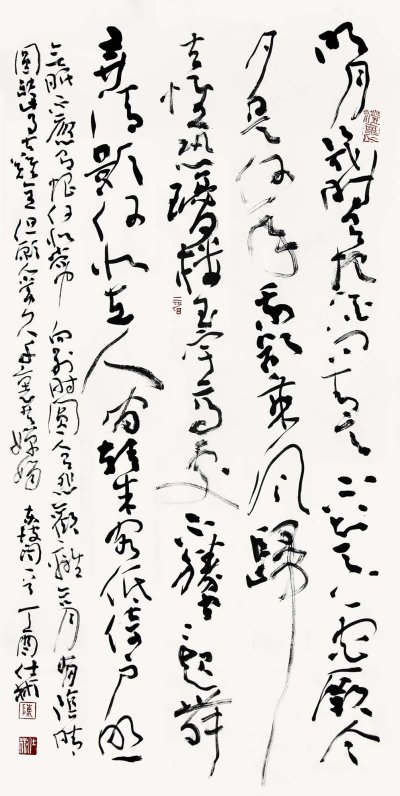 明月幾時有把酒問青天不知天上宮闕今
夕是何年我欲乘風歸
去惟恐瓊樓玉宇高處不勝寒起舞
弄清影何似在人間轉朱閣低綺戶照
無眠不應有恨何向別時圓人悲歡離合月有陰晴
圓缺此事古難全但願人長久千里共嬋娟 東坡詞一首 丁酉仕